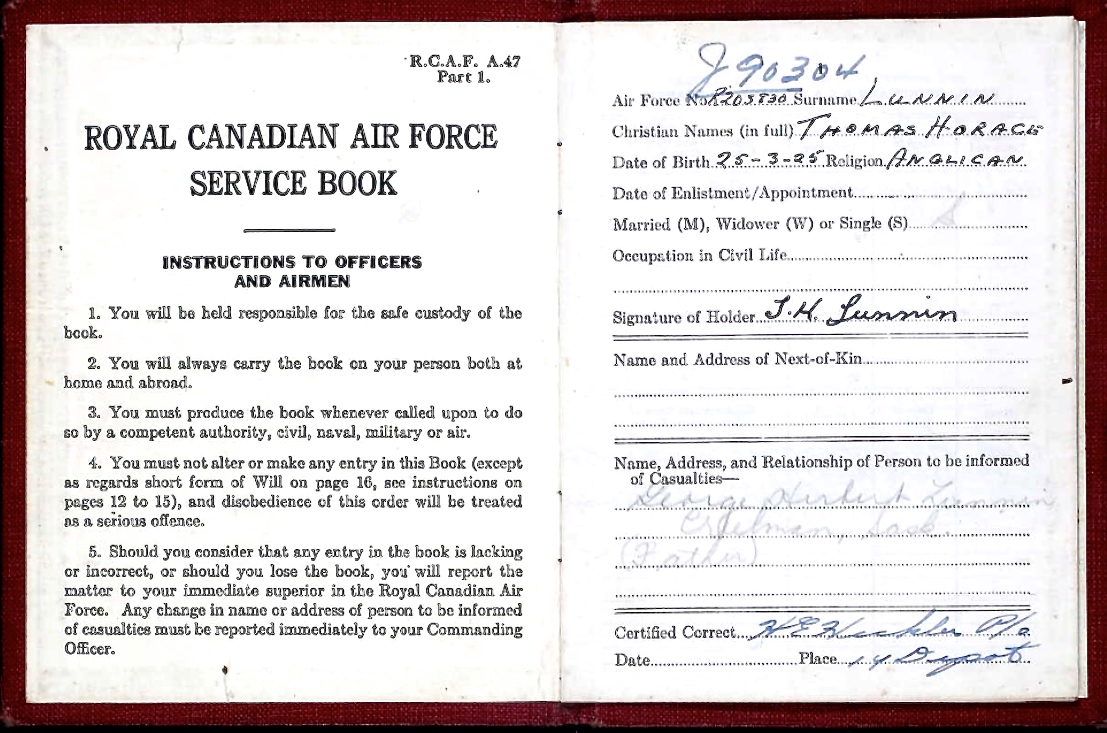 R.C.A.F. A.47
Part 1.
ROYAL CANADIAN AIR FORCE
SERVICE BOOK
INSTRUCTIONS TO OFFICERS
AND AIRMEN
1. You will be held responsible for the safe custody of the
book.
2. You will always carry the book on your person both at
home and abroad.
3. You must produce the book whenever called upon to do
so by a competent authority, civil, naval, military or air.
4. You must not alter or make any entry in this Book (except
as regards short form of Will on page 16, see instructions on
pages 12 to 15), and disobedience of this order will be treated
as a serious offence.
5. Should you consider that any entry in the book is lacking
or incorrect, or should you lose the book, you will report the
matter to your immediate superior in the Royal Canadian Air
Force. Any change in name or address of person to be informed
of casualties must be reported immediately to your Commanding
Officer.
J90304
Air Force No. Surname LUNNIN
Christian Names (in full) THOMAS HORACE
Date of Birth 25-3-25 Religion ANGLICAN
Date of Enlistment/Appointment
Married (M), Widower (W) or Single (S) S
Occupation in Civil Life
Signature of Holder T.H. Lunnin
Name and Address of Next-of-Kin
Name, Address, and Relationship of Person to be informed
of Casualties—
George Herbert Lunnin
Sask.
(Father)
Certified Correct P/O
Date Place 14 Depot